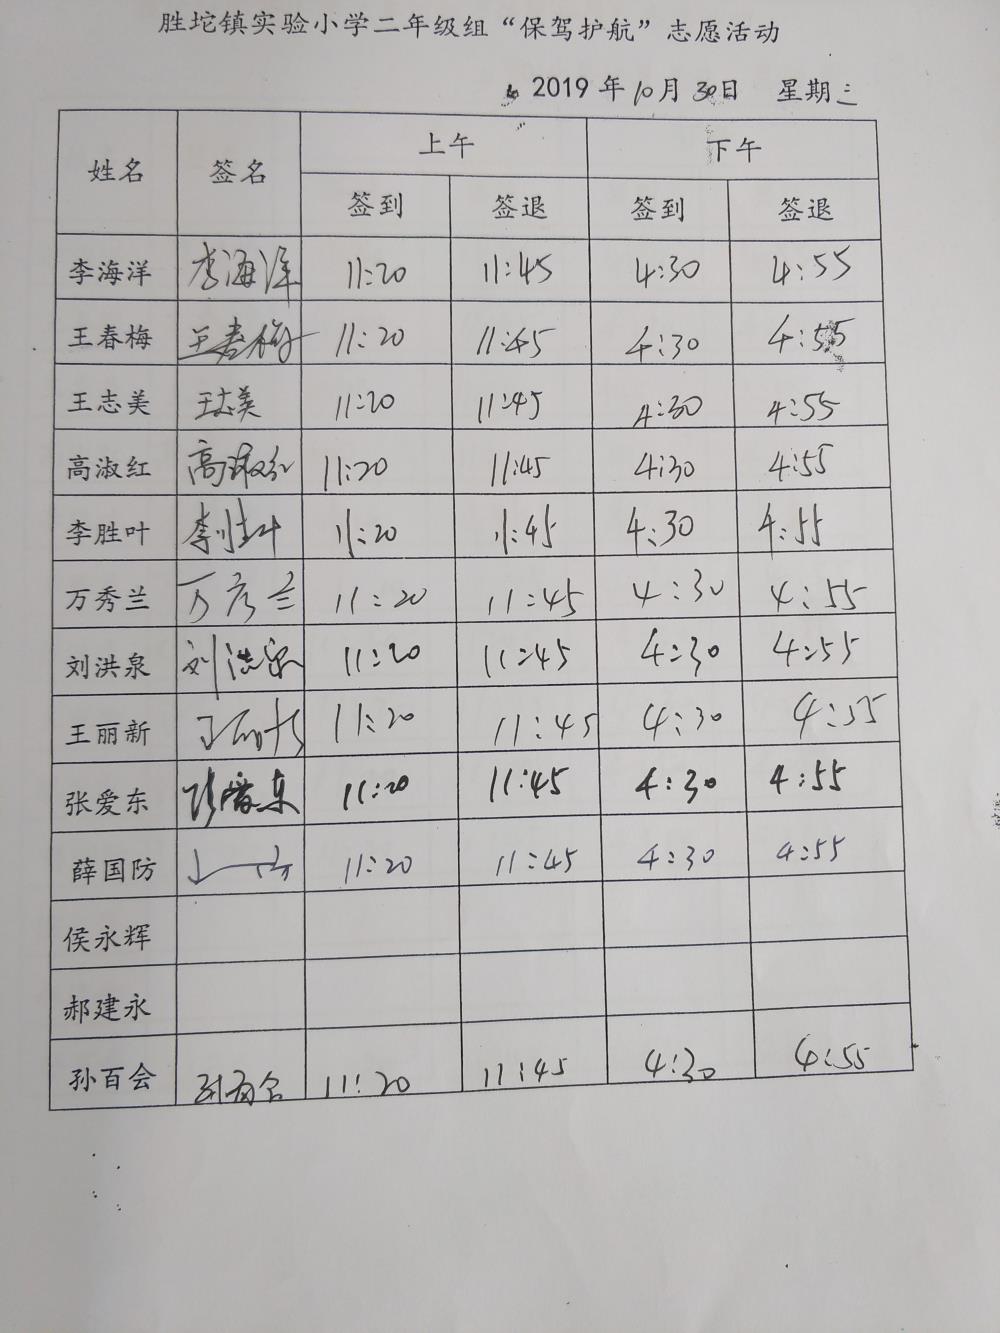 胜坨镇实验小学二年级组“保驾护航”志愿活动
2019 年 10 月 30 日 星期 三
姓名 签名 上午 下午
签到 签退 签到 签退
李海洋 李海洋 11:20 11:45 4:30 4:55
王春梅 王春梅 11:20 11:45 4:30 4:55
王志美 王志美 11:20 11:45 4:30 4:55
高淑红 高淑红 11:20 11:45 4:30 4:55
李胜叶 李胜叶 11:20 11:45 4:30 4:55
万秀兰 万秀兰 11:20 11:45 4:30 4:55
刘洪泉 刘洪泉 11:20 11:45 4:30 4:55
王丽新 王丽新 11:20 11:45 4:30 4:55
张爱东 张爱东 11:20 11:45 4:30 4:55
薛国防 11:20 11:45 4:30 4:55
侯永辉
郝建永
孙百会 孙百会 11:20 11:45 4:30 4:55